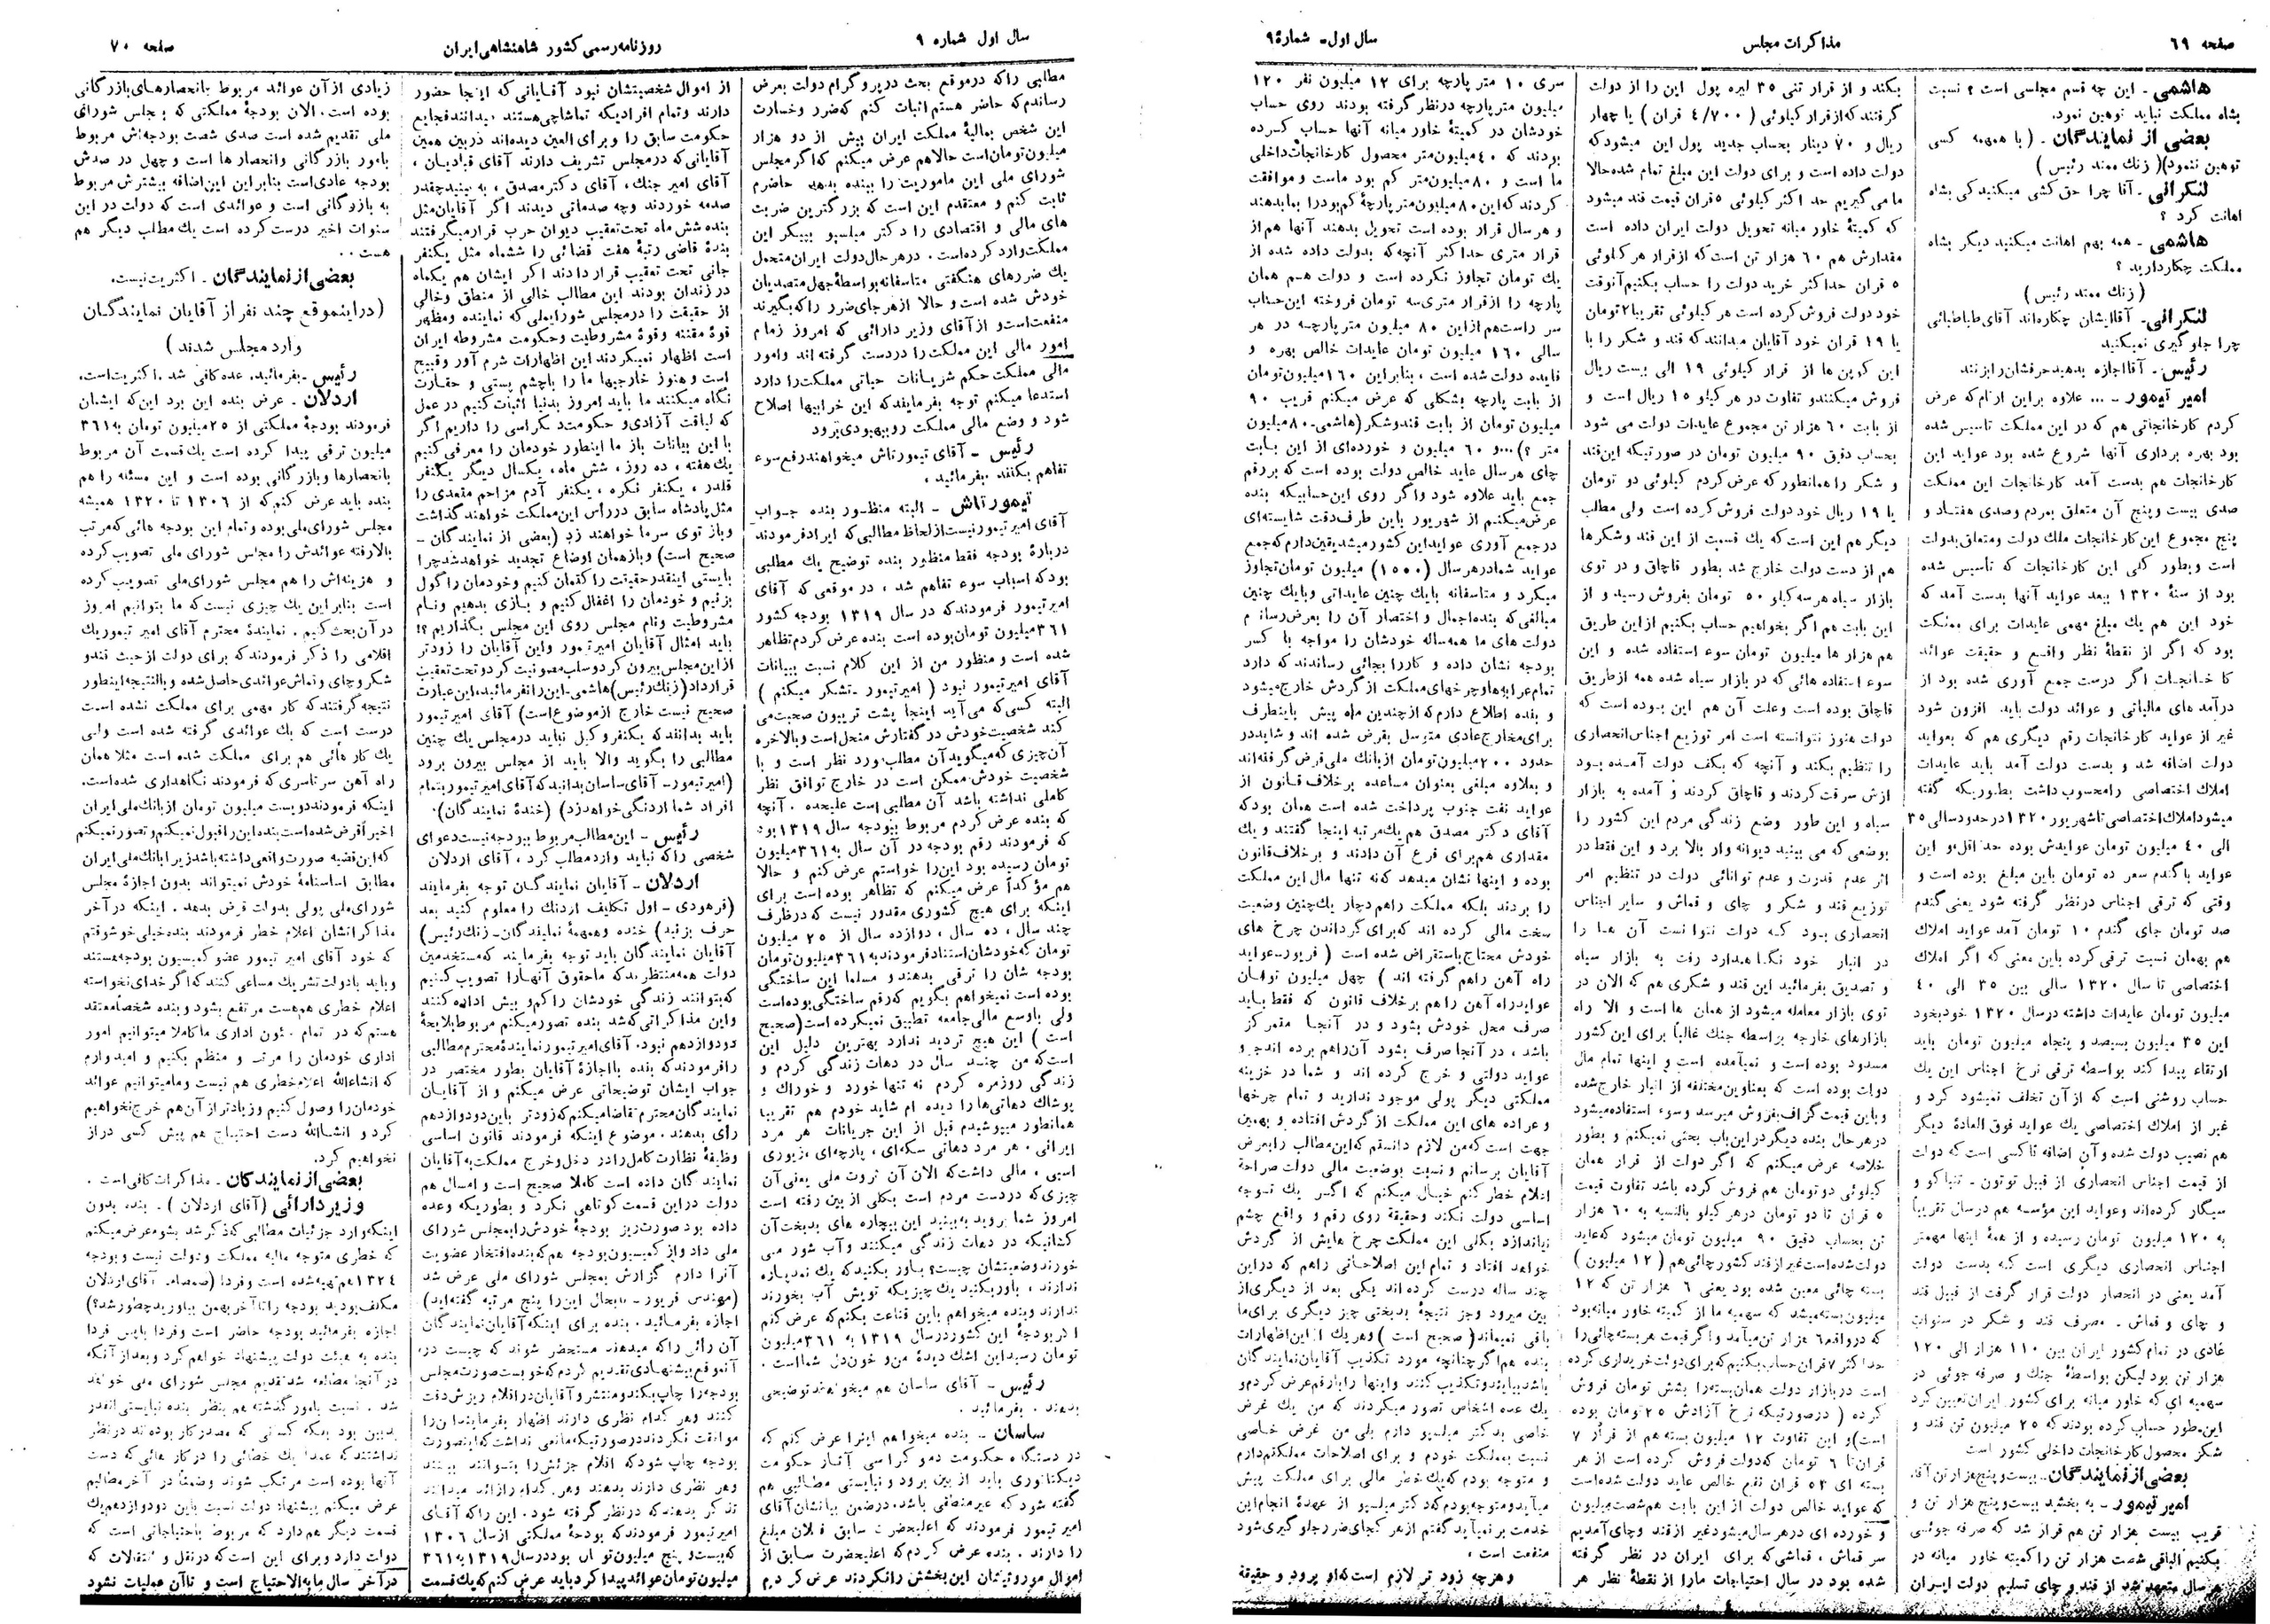 صفحه ٦٩
مذاکرات مجلس
سال اول ـ شمارهٔ ٩
هاشمی ـ این چه قسم مجلسی است ؟ نسبت
بشاه مملکت نباید توهین نمود.
بعضی از نمایندگان ـ (با همهمه کسی
توهین ننمود)(زنگ ممتد رئیس)
لنکرانی ـ آقا چرا حق کشی میکنید کی بشاه
اهانت کرد ؟
هاشمی ـ همه بهم اهانت میکنید دیگر بشاه
مملکت چکار دارید ؟
(زنگ ممتد رئیس)
لنکرانی ـ آقا ایشان چکاره‌اند آقای طباطبائی
چرا جلوگیری نمیکنید
رئیس ـ آقا اجازه بدهید حرفشان را بزنند
امیر تیمور ـ ... علاوه بر این ارقام که عرض
کردم کارخانجاتی هم که در این مملکت تأسیس شده
بود بهره برداری آنها شروع شده بود عواید این
کارخانجات هم بدست آمد کارخانجات این مملکت
صدی بیست و پنج آن متعلق بمردم و صدی هفتاد و
پنج مجموع این کارخانجات ملک دولت و متعلق بدولت
است و بطور کلی این کارخانجات که تأسیس شده
بود از سنهٔ ۱۳۲۰ ببعد عواید آنها بدست آمد که
خود این هم یک مبلغ مهمی عایدات برای مملکت
بود که اگر از نقطهٔ نظر واقع و حقیقت عوائد
کارخانجات اگر درست جمع آوری شده بود از
درآمد های مالیاتی و عوائد دولت باید افزون شود
غیر از عواید کارخانجات رقم دیگری هم که بعواید
دولت اضافه شد و بدست دولت آمد باید عایدات
املاک اختصاصی را محسوب داشت بطوریکه گفته
میشود املاک اختصاصی تا شهریور ۱۳۲۰ در حدود سالی ۳۵
الی ۴۰ میلیون تومان عوایدش بوده حداقل و این
عواید با گندم سعر ده تومان باین مبلغ بوده است و
وقتی که ترقی اجناس در نظر گرفته شود یعنی گندم
صد تومان جای گندم ۱۰ تومان آمد عواید املاک
هم بهمان نسبت ترقی کرده باین معنی که اگر املاک
اختصاصی تا سال ۱۳۲۰ سالی بین ۳۵ الی ۴۰
میلیون تومان عایدات داشته در سال ۱۳۲۰ خودبخود
این ۳۵ میلیون بسیصد و پنجاه میلیون تومان باید
ارتقاء پیدا کند بواسطه ترقی نرخ اجناس این یک
حساب روشنی است که از آن تخلف نمیشود کرد و
غیر از املاک اختصاصی یک عواید فوق العادهٔ دیگر
هم نصیب دولت شده و آن اضافه تاکسی است که دولت
از قیمت اجناس انحصاری از قبیل توتون ـ تنباکو و
سیگار کرده‌اند و عواید این مؤسسه هم در سال تقریباً
به ۱۲۰ میلیون تومان رسیده و از همهٔ اینها مهمتر
اجناس انحصاری دیگری است که بدست دولت
آمد یعنی در انحصار دولت قرار گرفت از قبیل قند
و چای و قماش ـ مصرف قند و شکر در سنوات
عادی در تمام کشور ایران بین ۱۱۰ هزار الی ۱۲۰
هزار تن بود لیکن بواسطهٔ جنگ و صرفه جوئی در
سهمیه ای که خاور میانه برای کشور ایران تعیین کرد
این‌طور حساب کرده بودند که ۲۵ میلیون تن قند و
شکر محصول کارخانجات داخلی کشور است
بعضی از نمایندگان ـ بیست و پنج هزار تن آقا.
امیر تیمور ـ به بخشید بیست و پنج هزار تن و
قریب بیست هزار تن هم قرار شد که صرفه جوئی
بکنیم الباقی شصت هزار تن را کمیته خاور میانه در
هر سال متعهد شد از قند و چای تسلیم دولت ایران
بکند و از قرار تنی ۳۵ لیره پول این را از دولت
گرفتند که از قرار کیلوئی (۴/۷۰۰ قران) یا چهار
ریال و ۷۰ دینار بحساب جدید پول این میشود که
دولت داده است و برای دولت این مبلغ تمام شده حالا
ما می گیریم حد اکثر کیلوئی ۵ قران قیمت قند میشود
که کمیتهٔ خاور میانه تحویل دولت ایران داده است
مقدارش هم ۶۰ هزار تن است که از قرار هر کیلوئی
۵ قران حداکثر خرید دولت را حساب بکنیم آنوقت
خود دولت فروش کرده است هر کیلوئی تقریبا ۲ تومان
یا ۱۹ قران خود آقایان میدانند که قند و شکر را با
این کوپن ها از قرار کیلوئی ۱۹ الی بیست ریال
فروش میکنند و تفاوت در هر کیلو ۱۵ ریال است و
از بابت ۶۰ هزار تن مجموع عایدات دولت می شود
بحساب دقیق ۹۰ میلیون تومان در صورتیکه این قند
و شکر را همانطور که عرض کردم کیلوئی دو تومان
یا ۱۹ ریال خود دولت فروش کرده است ولی مطلب
دیگر هم این است که یک قسمت از این قند و شکرها
هم از دست دولت خارج شد بطور قاچاق و در توی
بازار سیاه هر سه کیلو ۵۰ تومان بفروش رسید و از
این بابت هم اگر بخواهیم حساب بکنیم از این طریق
هم هزار ها میلیون تومان سوء استفاده شده و این
سوء استفاده هائی که در بازار سیاه شده همه از طریق
قاچاق بوده است و علت آن هم این بوده است که
دولت هنوز نتوانسته است امر توزیع اجناس انحصاری
را تنظیم بکند و آنچه که بکف دولت آمده بود
ازش سرقت کردند و قاچاق کردند و آمده به بازار
سیاه و این طور وضع زندگی مردم این کشور را
بوضعی که می بینید دیوانه وار بالا برد و این فقط در
اثر عدم قدرت و عدم توانائی دولت در تنظیم امر
توزیع قند و شکر و چای و قماش و سایر اجناس
انحصاری بود که دولت نتوانست آن ها را
در انبار خود نگاهدارد رفت به بازار سیاه
و تصدیق بفرمائید این قند و شکری هم که الان در
توی بازار معامله میشود از همان ها است و الا راه
بازارهای خارجه بواسطه جنگ غالباً برای این کشور
مسدود بوده است و نمیآمده است و اینها تمام مال
دولت بوده است که بعناوین مختلفه از انبار خارج شده
و باین قیمت گزاف بفروش میرسد و سوء استفاده میشود
در هر حال بنده دیگر در این باب بحثی نمیکنم و بطور
خلاصه عرض میکنم که اگر دولت از قرار همان
کیلوئی دو تومان هم فروش کرده باشد تفاوت قیمت
۵ قران تا دو تومان در هر کیلو بالنسبه به ۶۰ هزار
تن بحساب دقیق ۹۰ میلیون تومان میشود که عاید
دولت شده است غیر از قند کشور چائی هم (۱۲ میلیون)
بسته چائی معین شده بود یعنی ۶ هزار تن که ۱۲
میلیون بسته میشد که سهمیه ما از کمیته خاور میانه بود
که در واقع ۶ هزار تن میآمد و اگر قیمت هر بسته چائی را
حداکثر ۷ قران حساب بکنیم که برای دولت خریداری کرده
است در بازار دولت همان بسته را بشش تومان فروش
کرده (در صورتیکه نرخ آزادش ۲۵ تومان بوده
است) و این تفاوت ۱۲ میلیون بسته هم از قرار ۷
قران تا ۶ تومان که دولت فروش کرده است از هر
بسته ای ۵۳ قران نفع خالص عاید دولت شده است
که عواید خالص دولت از این بابت هم شصت میلیون
و خورده ای در هر سال میشود غیر از قند و چای آمدیم
سر قماش ، قماشی که برای ایران در نظر گرفته
شده بود در سال احتیاجات ما را از نقطهٔ نظر هر
سری ۱۰ متر پارچه برای ۱۲ میلیون نفر ۱۲۰
میلیون متر پارچه در نظر گرفته بودند روی حساب
خودشان در کمیتهٔ خاور میانه آنها حساب کرده
بودند که ۴۰ میلیون متر محصول کارخانجات داخلی
ما است و ۸۰ میلیون متر کم بود ماست و موافقت
کردند که این ۸۰ میلیون متر پارچهٔ کم بود را بما بدهند
و هر سال قرار بوده است تحویل بدهند آنها هم از
قرار متری حداکثر آنچه که بدولت داده شده از
یک تومان تجاوز نکرده است و دولت هم همان
پارچه را از قرار متری سه تومان فروخته این حساب
سر راست هم از این ۸۰ میلیون متر پارچه در هر
سالی ۱۶۰ میلیون تومان عایدات خالص بهره و
فایده دولت شده است ، بنابراین ۱۶۰ میلیون تومان
از بابت پارچه بشکلی که عرض میکنم قریب ۹۰
میلیون تومان از بابت قند و شکر (هاشمی ـ ۸۰ میلیون
متر ؟)... و ۶۰ میلیون و خورده‌ای از این بابت
چای هر سال عاید خالص دولت بوده است که بر رقم
جمع باید علاوه شود و اگر روی این حسابیکه بنده
عرض میکنم از شهریور باین طرف دقت شایسته‌ای
در جمع آوری عواید این کشور میشد یقین دارم که جمع
عواید شما در هر سال (۱۵۰۰) میلیون تومان تجاوز
میکرد و متاسفانه با یک چنین عایداتی و با یک چنین
مبالغی که بنده اجمال و اختصار آن را بعرض رساندم
دولت های ما همه ساله خودشان را مواجه با کسر
بودجه نشان داده و کار را بجائی رساندند که دارد
تمام عرابه‌ها و چرخهای مملکت از گردش خارج میشود
و بنده اطلاع دارم که از چندین ماه پیش باینطرف
برای مخارج عادی متوسل بقرض شده اند و شاید در
حدود ۲۰۰ میلیون تومان از بانک ملی قرض گرفته‌اند
و بعلاوه مبلغی بعنوان مساعده بر خلاف قانون از
عواید نفت جنوب پرداخت شده است همان بود که
آقای دکتر مصدق هم یک مرتبه اینجا گفتند و یک
مقداری هم برای قرع آن دادند و بر خلاف قانون
بوده و اینها نشان میدهد که نه تنها مال این مملکت
را بردند بلکه مملکت را هم دچار یک چنین وضعیت
سخت مالی کرده اند که برای گرداندن چرخ های
خودش محتاج باستقراض شده است (فریور ـ عواید
راه آهن را هم گرفته اند) چهل میلیون تومان
عواید راه آهن را هم بر خلاف قانون که فقط باید
صرف محل خودش بشود و در آنجا متمرکز
باشد ، در آنجا صرف بشود آن را هم برده اند جزو
عواید دولتی و خرج کرده اند و شما در خزینه
مملکتی دیگر پولی موجود ندارید و تمام چرخها
و عراده های این مملکت از گردش افتاده و بهمین
جهت است که من لازم دانستم که این مطالب را بعرض
آقایان برسانم و نسبت بوضعیت مالی دولت صراحة
اعلام خطر کنم خیال میکنم که اگر یک توجه
اساسی دولت نکند و حقیقة روی رقم و واقع چشم
نیاندازد بکلی این مملکت چرخ هایش از گردش
خواهد افتاد و تمام این اصلاحاتی را هم که در این
چند ساله درست کرده اند یکی بعد از دیگری از
بین میرود و جز نتیجهٔ بدبختی چیز دیگری برای ما
باقی نمیماند (صحیح است) و هر یک از این اظهارات
بنده هم اگر چنانچه مورد تکذیب آقایان نمایندگان
باشد بیایند و تکذیب کنند و اینها را با رقم عرض کردم و
یک عده اشخاص تصور میکردند که من یک غرض
خاصی بدکتر میلسپو دارم بلی من غرض خاصی
نسبت بمملکت خودم و برای اصلاحات مملکتم دارم
و متوجه بودم که یک خطر مالی برای مملکت پیش
میآید و متوجه بودم که دکتر میلسپو از عهدهٔ انجام این
خدمت بر نمیآید گفتم از هر کجای ضرر جلوگیری شود
منفعت است ،
و هر چه زود تر لازم است که او برود و حقیقة
سال اول شماره ٩
روزنامه رسمی کشور شاهنشاهی ایران
صفحه ۷۰
مطالبی را که در موقع بحث در پروگرام دولت بعرض
رساندم که حاضر هستم اثبات کنم که ضرر و خسارت
این شخص بمالیهٔ مملکت ایران بیش از دو هزار
میلیون تومان است حالا هم عرض میکنم که اگر مجلس
شورای ملی این ماموریت را ببنده بدهد حاضرم
ثابت کنم و معتقدم این است که بزرگترین ضربت
های مالی و اقتصادی را دکتر میلسپو بپیکر این
مملکت وارد کرده است . در هر حال دولت ایران متحمل
یک ضررهای هنگفتی متاسفانه بواسطهٔ جهل متصدیان
خودش شده است و حالا از هر جای ضرر را که بگیرند
منفعت است و از آقای وزیر دارائی که امروز زمام
امور مالی این مملکت را در دست گرفته اند و امور
مالی مملکت حکم شریانات حیاتی مملکت را دارد
استدعا میکنم توجه بفرمایند که این خرابیها اصلاح
شود و وضع مالی مملکت رو ببهبودی برود
رئیس ـ آقای تیمورتاش میخواهند رفع سوء
تفاهم بکنند . بفرمائید ،
تیمورتاش ـ البته منظور بنده جواب
آقای امیر تیمور نیست از لحاظ مطالبی که ایراد فرمودند
دربارهٔ بودجه فقط منظور بنده توضیح یک مطلبی
بود که اسباب سوء تفاهم شد ، در موقعی که آقای
امیر تیمور فرمودند که در سال ۱۳۱۹ بودجه کشور
۳۶۱ میلیون تومان بوده است بنده عرض کردم تظاهر
شده است و منظور من از این کلام نسبت ببیانات
آقای امیر تیمور نبود (امیر تیمور ـ تشکر میکنم)
البته کسی که می آید اینجا پشت تریبون صحبت می
کند شخصیت خودش در گفتارش منحل است و بالاخره
آن چیزی که میگوید آن مطلب مورد نظر است و با
شخصیت خودش ممکن است در خارج توافق نظر
کاملی نداشته باشد آن مطلبی است علیحده . آنچه
که بنده عرض کردم مربوط ببودجه سال ۱۳۱۹ بود
که فرمودند رقم بودجه در آن سال به ۳۶۱ میلیون
تومان رسیده بود این را خواستم عرض کنم و حالا
هم مؤکداً عرض میکنم که تظاهر بوده است برای
اینکه برای هیچ کشوری مقدور نیست که در ظرف
چند سال ، ده سال ، دوازده سال از ۲۵ میلیون
تومان که خودشان استناد فرمودند به ۳۶۱ میلیون تومان
بودجه شان را ترقی بدهند و مسلما این ساختگی
بوده است نمیخواهم بگویم که رقم ساختگی بوده است
ولی با وسع مالی جامعه تطبیق نمیکرده است (صحیح
است) این هیچ تردید ندارد بهترین دلیل این
است که من چند سال در دهات زندگی کردم و
زندگی روزمره کردم نه تنها خورد و خوراک و
پوشاک دهاتی ها را دیده ام شاید خودم هم تقریبا
همانطور میپوشیدم قبل از این جریانات هر مرد
ایرانی ، هر مرد دهاتی سکه‌ای ، پارچه‌ای ، زیوری
اسبی ، مالی داشت که الان آن ثروت ملی یعنی آن
چیزی که در دست مردم است بکلی از بین رفته است
امروز شما بروید به بینید این بیچاره های بدبخت آن
کسانیکه در دهات زندگی میکنند و آب شور می
خورند وضعیتشان چیست؟ باور بکنید که یک نمد پاره
ندارند ، باور بکنید یک چیزیکه تویش آب بخورند
ندارند و بنده میخواهم باین قناعت بکنم که عرض کنم
اگر بودجهٔ این کشور در سال ۱۳۱۹ به ۳۶۱ میلیون
تومان رسید این اشک دیدهٔ من و خون دل شما است .
رئیس ـ آقای ساسان هم میخواهند توضیحی
بدهند . بفرمائید .
ساسان ـ بنده میخواهم اینرا عرض کنم که
در دستگاه حکومت دمو کراسی آثار حکومت
دیکتاتوری باید از بین برود و نبایستی مطالبی هم
گفته شود که غیر منطقی باشد . در ضمن بیانشان آقای
امیر تیمور فرمودند که اعلیحضرت سابق فلان مبلغ
را دارند . بنده عرض کردم که اعلیحضرت سابق از
اموال موروثیشان این بخشش را نکردند عرض کردم
از اموال شخصیتشان نبود آقایانی که اینجا حضور
دارند و تمام افرادیکه تماشاچی هستند میدانند فجایع
حکومت سابق را و برای العین دیده‌اند در بین همین
آقایانی که در مجلس تشریف دارند آقای قبادیان ،
آقای امیر جنگ ، آقای دکتر مصدق ، به بینید چقدر
صدمه خوردند و چه صدماتی دیدند اگر آقایان مثل
بنده شش ماه تحت تعقیب دیوان حرب قرار میگرفتند
بندهٔ قاضی رتبهٔ هفت قضائی را ششماه مثل یکنفر
جانی تحت تعقیب قرار دادند اگر ایشان هم یکماه
در زندان بودند این مطالب خالی از منطق و خالی
از حقیقت را در مجلس شورایملی که نماینده و مظهر
قوهٔ مقننه و قوهٔ مشروطیت و حکومت مشروطه ایران
است اظهار نمیکردند این اظهارات شرم آور و قبیح
است و هنوز خارجیها ما را با چشم پستی و حقارت
نگاه میکنند ما باید امروز بدنیا اثبات کنیم در عمل
که لیاقت آزادی و حکومت دمکراسی را داریم اگر
با این بیانات باز ما اینطور خودمان را معرفی کنیم
یک هفته ، ده روز ، شش ماه ، یکسال دیگر یکنفر
قلدر ، یکنفر نکره ، یکنفر آدم مزاحم متعدی را
مثل پادشاه سابق در رأس این مملکت خواهند گذاشت
و باز توی سر ما خواهند زد (بعضی از نمایندگان ـ
صحیح است) و باز همان اوضاع تجدید خواهد شد چرا
بایستی اینقدر حقیقت را کتمان کنیم و خودمان را گول
بزنیم و خودمان را اغفال کنیم و بازی بدهیم و نام
مشروطیت و نام مجلس روی این مجلس بگذاریم ؟!
باید امثال آقایان امیر تیمور و این آقایان را زودتر
از این مجلس بیرون کرد و سلب مصونیت کرد و تحت تعقیب
قرار داد (زنگ رئیس) هاشمی ـ این را نفرمائید ، این عبارت
صحیح نیست خارج از موضوع است) آقای امیر تیمور
باید بدانند که یکنفر وکیل نباید در مجلس یک چنین
مطالبی را بگوید والا باید از مجلس بیرون برود
(امیر تیمور ـ آقای ساسان بدانید که آقای امیر تیمور بتمام
افراد شما اردنگی خواهد زد) (خندهٔ نمایندگان).
رئیس ـ این مطالب مربوط ببودجه نیست دعوای
شخصی را که نباید وارد مطلب کرد ، آقای اردلان
اردلان ـ آقایان نمایندگان توجه بفرمایند
(فرهودی ـ اول تکلیف اردنگ را معلوم کنید بعد
حرف بزنید) خنده و همهمهٔ نمایندگان ـ زنگ رئیس)
آقایان نمایندگان باید توجه بفرمایند که مستخدمین
دولت همه منتظرند که ما حقوق آنها را تصویب کنیم
که بتوانند زندگی خودشان را کم و بیش اداره کنند
و این مذاکراتی که شد بنده تصور میکنم مربوط بلایحهٔ
دو دوازدهم نبود . آقای امیر تیمور نمایندهٔ محترم مطالبی
را فرمودند که بنده با اجازهٔ آقایان بطور مختصر در
جواب ایشان توضیحاتی عرض میکنم و از آقایان
نمایندگان محترم تقاضا میکنم که زودتر باین دو دوازدهم
رای بدهند . موضوع اینکه فرمودند قانون اساسی
وظیفهٔ نظارت کامل را در دخل و خرج مملکت به آقایان
نمایندگان داده است کاملا صحیح است و امسال هم
دولت در این قسمت کوتاهی نکرد و بطوریکه وعده
داده بود صورت ریز بودجهٔ خودش را بمجلس شورای
ملی داد و از کمیسیون بودجه هم که بنده افتخار عضویت
آنرا دارم گزارش بمجلس شورای ملی عرض شد
(مهندس فریور ـ تابحال این را پنج مرتبه گفته‌اید)
اجازه بفرمائید . بنده برای اینکه آقایان نمایندگان
آن رائی را که میدهند مستحضر شوند که چیست در
آنموقع پیشنهادی تقدیم کردم که خوبست صورت مجلس
بودجه را چاپ بکند و منتشر و آقایان در اقلام ریزش دقت
کنند و هر کدام نظری دارند اظهار بفرمایند این را
موافقت نکردند در صورتیکه مانعی نداشت که اینصورت
بودجه چاپ شود که اقلام جزئش را بتوانند ببینند
و هر نظری دارند بدهند و هر کدام را زائد میدانند
تذکر بدهند که در نظر گرفته شود . این را که آقای
امیر تیمور فرمودند که بودجهٔ مملکتی از سال ۱۳۰۶
که بیست و پنج میلیون تومان بود در سال ۱۳۱۹ به ۳۶۱
میلیون تومان عوائد پیدا کرد باید عرض کنم که یک قسمت
زیادی از آن عوائد مربوط بانحصارهای بازرگانی
بوده است ، الان بودجهٔ مملکتی که بمجلس شورای
ملی تقدیم شده است صدی شصت بودجه‌اش مربوط
بامور بازرگانی و انحصارها است و چهل در صدش
بودجه عادی است بنابراین این اضافه بیشترش مربوط
به بازرگانی است و عوائدی است که دولت در این
سنوات اخیر درست کرده است یک مطلب دیگر هم
هست ..
بعضی از نمایندگان ـ اکثریت نیست.
(در اینموقع چند نفر از آقایان نمایندگان
وارد مجلس شدند)
رئیس ـ بفرمائید . عده کافی شد . اکثریت است.
اردلان ـ عرض بنده این برد این که ایشان
فرمودند بودجهٔ مملکتی از ۲۵ میلیون تومان به ۳۶۱
میلیون ترقی پیدا کرده است یک قسمت آن مربوط
بانحصارها و بازرگانی بوده است و این مسئله را هم
بنده باید عرض کنم که از ۱۳۰۶ تا ۱۳۲۰ همیشه
مجلس شورای ملی بوده و تمام این بودجه هائی که مرتب
بالا رفته عوائدش را مجلس شورای ملی تصویب کرده
و هزینه‌اش را هم مجلس شورای ملی تصویب کرده
است بنابراین یک چیزی نیست که ما بتوانیم امروز
در آن بحث کنیم . نمایندهٔ محترم آقای امیر تیمور یک
اقلامی را ذکر فرمودند که برای دولت از حیث قند و
شکر و چای و قماش عوائدی حاصل شده و بالنتیجه اینطور
نتیجه گرفتند که کار مهمی برای مملکت نشده است
درست است که یک عوائدی گرفته شده است ولی
یک کارهائی هم برای مملکت شده است مثلا همان
راه آهن سرتاسری که فرمودند نگاهداری شده است.
اینکه فرمودند دویست میلیون تومان از بانک ملی ایران
اخیراً قرض شده است بنده این را قبول نمیکنم و تصور نمیکنم
که این قضیه صورت واقعی داشته باشد زیرا بانک ملی ایران
مطابق اساسنامهٔ خودش نمیتواند بدون اجازهٔ مجلس
شورای ملی پولی بدولت قرض بدهد . اینکه در آخر
مذاکراتشان اعلام خطر فرمودند بنده خیلی خوشوقتم
که خود آقای امیر تیمور عضو کمیسیون بودجه هستند
و باید با دولت تشریک مساعی کنند که اگر خدای نخواسته
اعلام خطری هم هست مرتفع بشود و بنده شخصاً معتقد
هستم که در تمام شئون اداری ما کاملا میتوانیم امور
اداری خودمان را مرتب و منظم بکنیم و امیدوارم
که انشاءالله اعلام خطری هم نیست و ما میتوانیم عوائد
خودمان را وصول کنیم و زیادتر از آن هم خرج نخواهیم
کرد و انشاءالله دست احتیاج هم پیش کسی دراز
نخواهیم کرد.
بعضی از نمایندگان ـ مذاکرات کافی است .
وزیر دارائی (آقای اردلان) ـ بنده بدون
اینکه وارد جزئیات مطالبی که ذکر شد بشوم عرض میکنم
که خطری متوجه مالیه مملکت و دولت نیست و بودجه
۱۳۲۴ هم تهیه شده است و فردا (صمصام ـ آقای اردلان
مکلف بودید بودجه را تا آخر بهمن بیاورید چطور شد؟)
اجازه بفرمائید بودجه حاضر است و فردا یا پس فردا
بنده به هیئت دولت پیشنهاد خواهم کرد و بعد از آنکه
در آنجا مطالعه شد تقدیم مجلس شورای ملی خواهد
شد . نسبت بامور گذشته هم بنظر بنده نبایستی آنقدر
بدبین بود بیکه کسانی که مصدر کار بوده اند در نظر
نداشتند که عمداً یک خطائی را در کار هائی که دست
آنها بوده است مرتکب شوند و ضمناً در آخر مطالبم
عرض میکنم پیشنهاد دولت نسبت باین دو دوازدهم یک
قسمت دیگر هم دارد که مربوط باحتیاجاتی است که
دولت دارد و برای این است که در نقل و انتقالات که
در آخر سال مابه الاحتیاج است و تا آن عملیات نشود